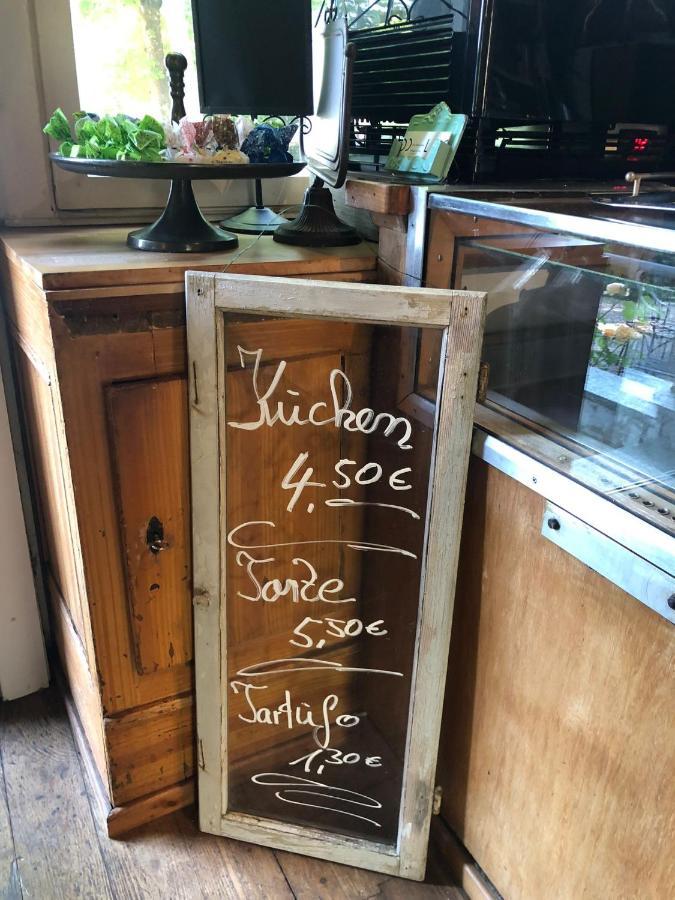 Kuchen
4.50 €
Torte
5,50 €
Tartüfo
1,30 €